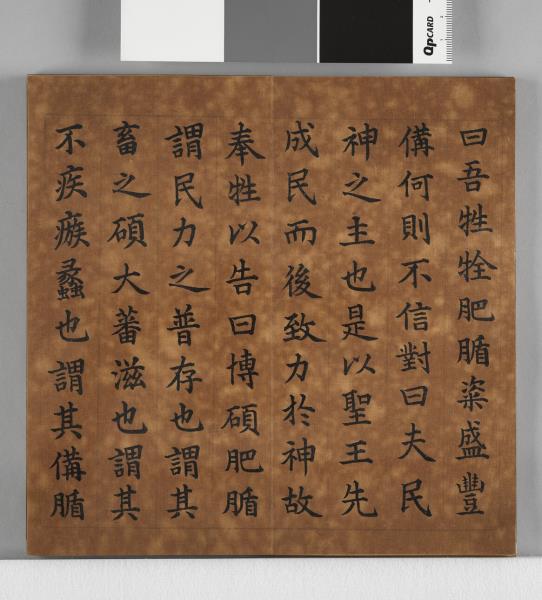 曰吾牲牷肥腯粢盛豐
備何則不信對曰夫民
神之主也是以聖王先
成民而後致力於神故
奉牲以告曰博碩肥腯
謂民力之普存也謂其
畜之碩大蕃滋也謂其
不疾瘯蠡也謂其備腯
QPCARD